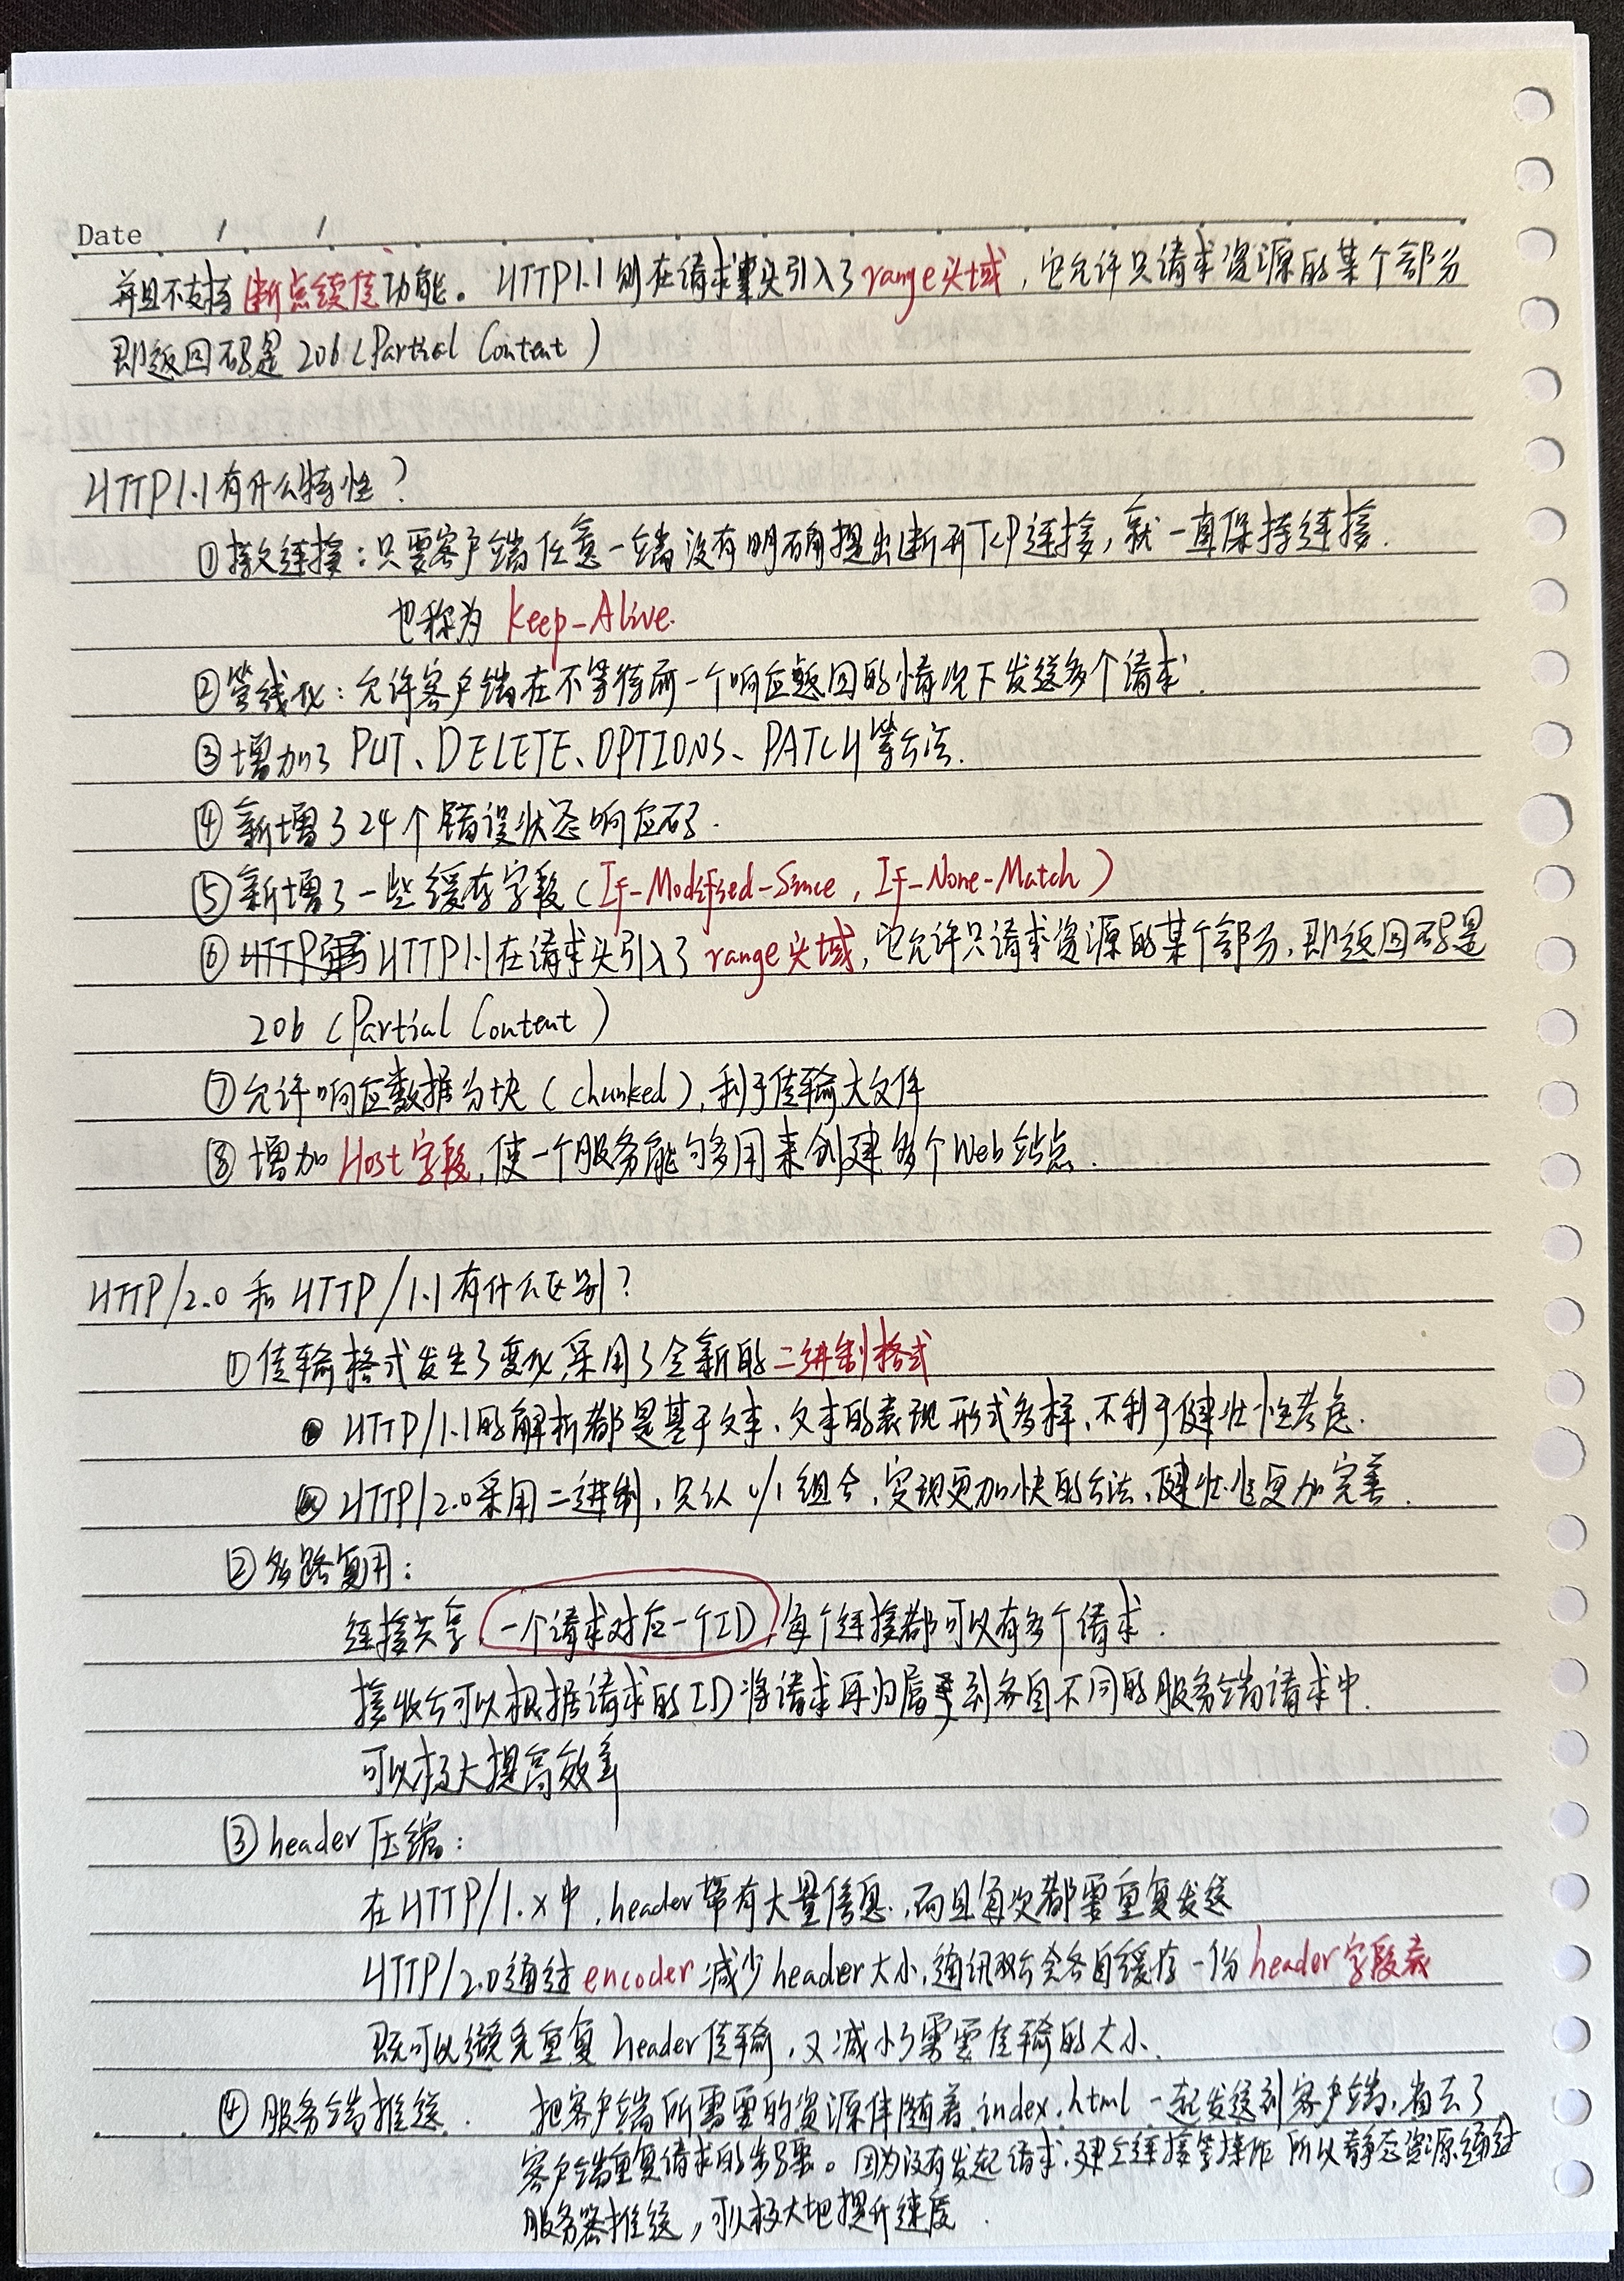 Date / /
并且不支持断点续传功能。HTTP1.1则在请求头引入了range头域，它允许只请求资源的某个部分
即返回码是206(Partial Content)
HTTP1.1有什么特性？
①持久连接：只要客户端任意一端没有明确提出断开TCP连接，就一直保持连接.
也称为 keep-Alive.
②管线化：允许客户端在不等待前一个响应返回的情况下发送多个请求.
③增加了PUT、DELETE、OPTIONS、PATCH等方法.
④新增了24个错误状态响应码.
⑤新增了一些缓存字段(If-Modified-Since，If-None-Match)
⑥HTTP1.1在请求头引入了range头域，它允许只请求资源的某个部分，即返回码是
206 (Partial Content)
⑦允许响应数据分块(chunked)，利于传输大文件
⑧增加Host字段，使一个服务能够多用来创建多个Web站点.
HTTP/2.0和HTTP/1.1有什么区别？
①传输格式发生了变化，采用了全新的二进制格式
● HTTP/1.1的解析都是基于文本、文本的表现形式多样、不利于健壮性考虑.
● HTTP/2.0采用二进制，只认0/1组合，实现更加快的方法、健壮性更加完善.
②多路复用：
连接共享，一个请求对应一个ID，每个连接都可以有多个请求.
接收方可以根据请求的ID将请求再归属到各自不同的服务端请求中.
可以极大提高效率
③header压缩：
在HTTP/1.x中，header带有大量信息，而且每次都需重复发送
HTTP/2.0通过encoder减少header大小，通讯双方会各自缓存一份header字段表
既可以避免重复header传输，又减小了需要传输的大小.
④服务端推送. 把客户端所需要的资源伴随着index.html一起发送到客户端，省去了
客户端重复请求的步骤。因为没有发起请求、建立连接等操作所以静态资源通过
服务器推送，可以极大地提升速度.